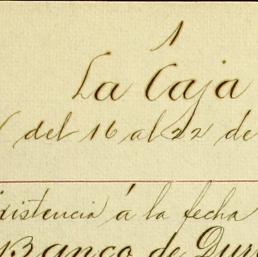 1
La Caja
( del 16 al 22 de
existencia á la fecha
Banco de Dur